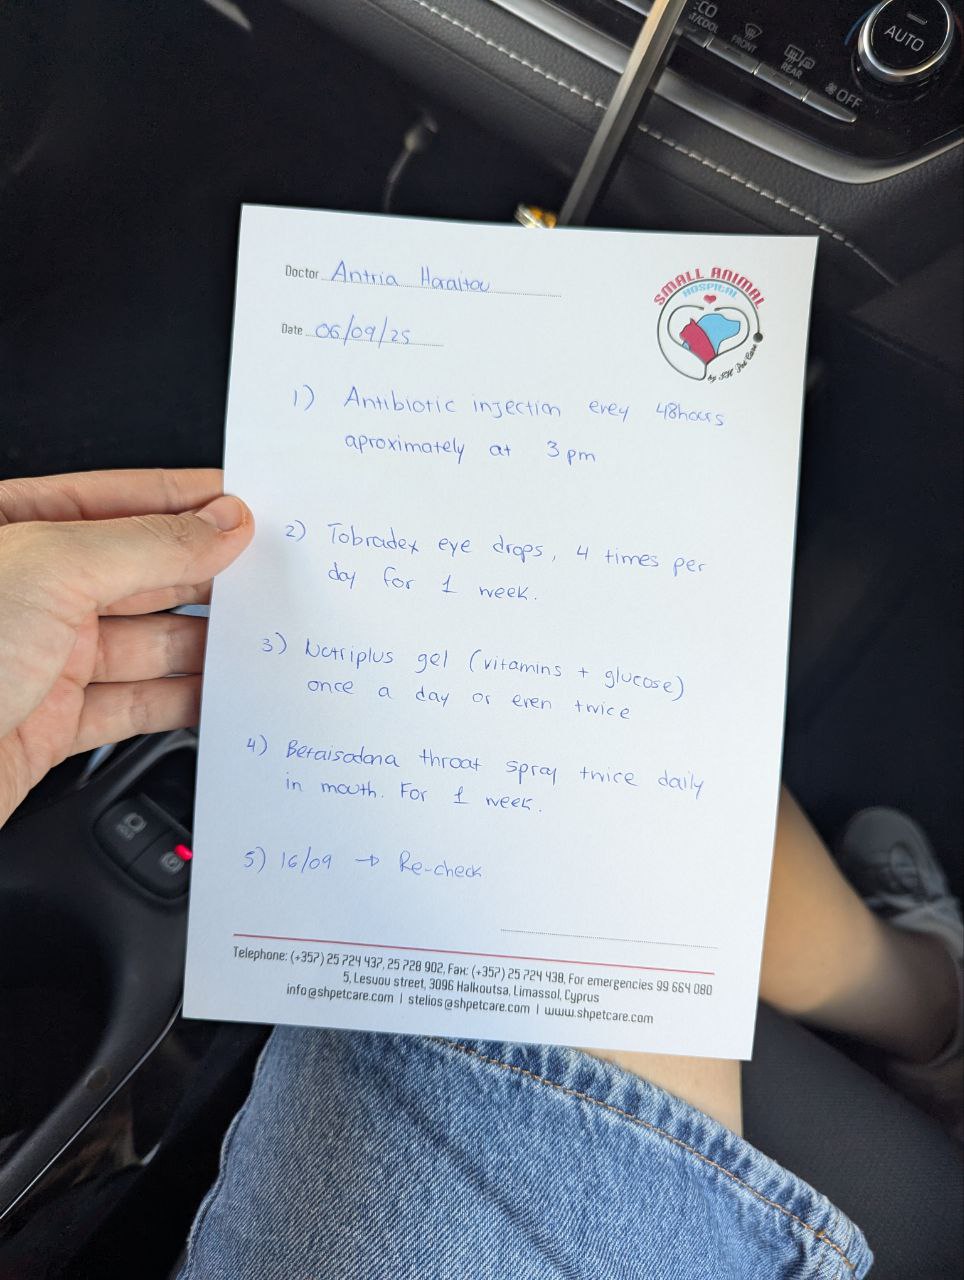 CO
ST/COOL
FRONT
REAR
OFF
AUTO
Doctor Antria Haraitou
Date 06/09/25
SMALL ANIMAL
HOSPITAL
by SH Pet Care
1) Antibiotic injection evey 48hours
aproximately at 3pm
2) Tobradex eye drops, 4 times per
day for 1 week.
3) Nutriplus gel (vitamins + glucose)
once a day or even twice
4) Betaisodona throat spray twice daily
in mouth. For 1 week.
5) 16/09 → Re-check
Telephone: (+357) 25 724 437, 25 728 902, Fax: (+357) 25 724 438, For emergencies 99 664 080
5, Lesvou street, 3096 Halkoutsa, Limassol, Cyprus
info@shpetcare.com | stelios@shpetcare.com | www.shpetcare.com